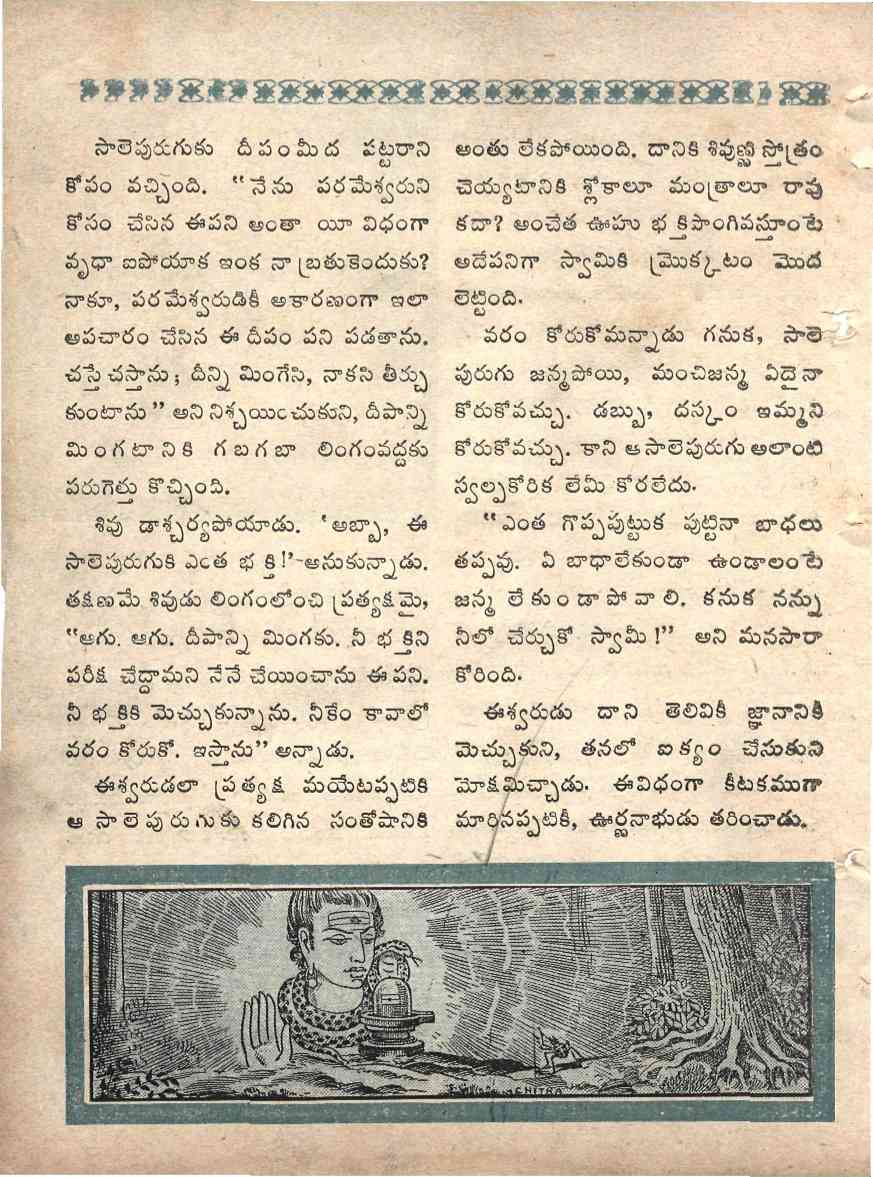 సాలెపురుగుకు దీపంమీద పట్టరాని
కోపం వచ్చింది. “నేను పరమేశ్వరుని
కోసం చేసిన ఈపని అంతా యీ విధంగా
వృధా ఐపోయాక ఇంక నా బ్రతుకెందుకు?
నాకూ, పరమేశ్వరుడికీ అకారణంగా ఇలా
అపచారం చేసిన ఈ దీపం పని పడతాను.
చస్తే చస్తాను; దీన్ని మింగేసి, నాకసి తీర్చు
కుంటాను” అని నిశ్చయించుకుని, దీపాన్ని
మింగటానికి గబగబా లింగంవద్దకు
పరుగెత్తు కొచ్చింది.
శివు డాశ్చర్యపోయాడు. ‘అబ్బా, ఈ
సాలెపురుగుకి ఎంత భక్తి!’-అనుకున్నాడు.
తక్షణమే శివుడు లింగంలోంచి ప్రత్యక్షమై,
“ఆగు. ఆగు. దీపాన్ని మింగకు. నీ భక్తిని
పరీక్ష చేద్దామని నేనే చేయించాను ఈ పని.
నీ భక్తికి మెచ్చుకున్నాను. నీకేం కావాలో
వరం కోరుకో. ఇస్తాను” అన్నాడు.
ఈశ్వరుడలా ప్రత్యక్ష మయేటప్పటికి
ఆ సాలెపురుగుకు కలిగిన సంతోషానికి
అంతు లేకపోయింది. దానికి శివుణ్ణి స్తోత్రం
చెయ్యటానికి శ్లోకాలూ మంత్రాలూ రావు
కదా? అంచేత ఊహు భక్తిపొంగివస్తూంటే
అదేపనిగా స్వామికి మ్రొక్కటం మొద
లెట్టింది.
వరం కోరుకోమన్నాడు గనుక, సాలె
పురుగు జన్మపోయి, మంచిజన్మ ఏదైనా
కోరుకోవచ్చు. డబ్బు, దస్కం ఇమ్మని
కోరుకోవచ్చు. కాని ఆసాలెపురుగు అలాంటి
స్వల్పకోరిక లేమీ కోరలేదు.
“ఎంత గొప్పపుట్టుక పుట్టినా బాధలు
తప్పవు. ఏ బాధాలేకుండా ఉండాలంటే
జన్మ లేకుండాపోవాలి. కనుక నన్ను
నీలో చేర్చుకో స్వామీ!” అని మనసారా
కోరింది.
ఈశ్వరుడు దాని తెలివికీ జ్ఞానానికీ
మెచ్చుకుని, తనలో ఐక్యం చేసుకుని
మోక్షమిచ్చాడు. ఈవిధంగా కీటకముగా
మారినప్పటికీ, ఊర్ణనాభుడు తరించాడు.
CHITRA